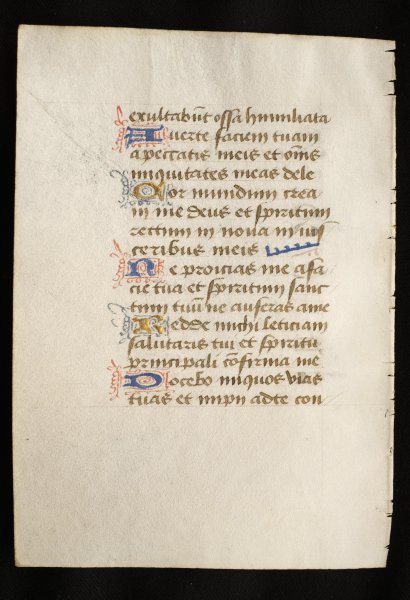 exultabūt ossa humiliata
Auerte faciem tuam
a peccatis meis et om̄s
iniquitates meas dele
Cor mundum crea
in me deus et spiritum
rectum in noua in uis
ceribus meis
Ne proicias me a fa
cie tua et spiritum sanc
tum tuū ne auferas a me
Redde michi leticiam
salutaris tui et spiritu
principali cōfirma me
Docebo iniquos vias
tuas et impii ad te con